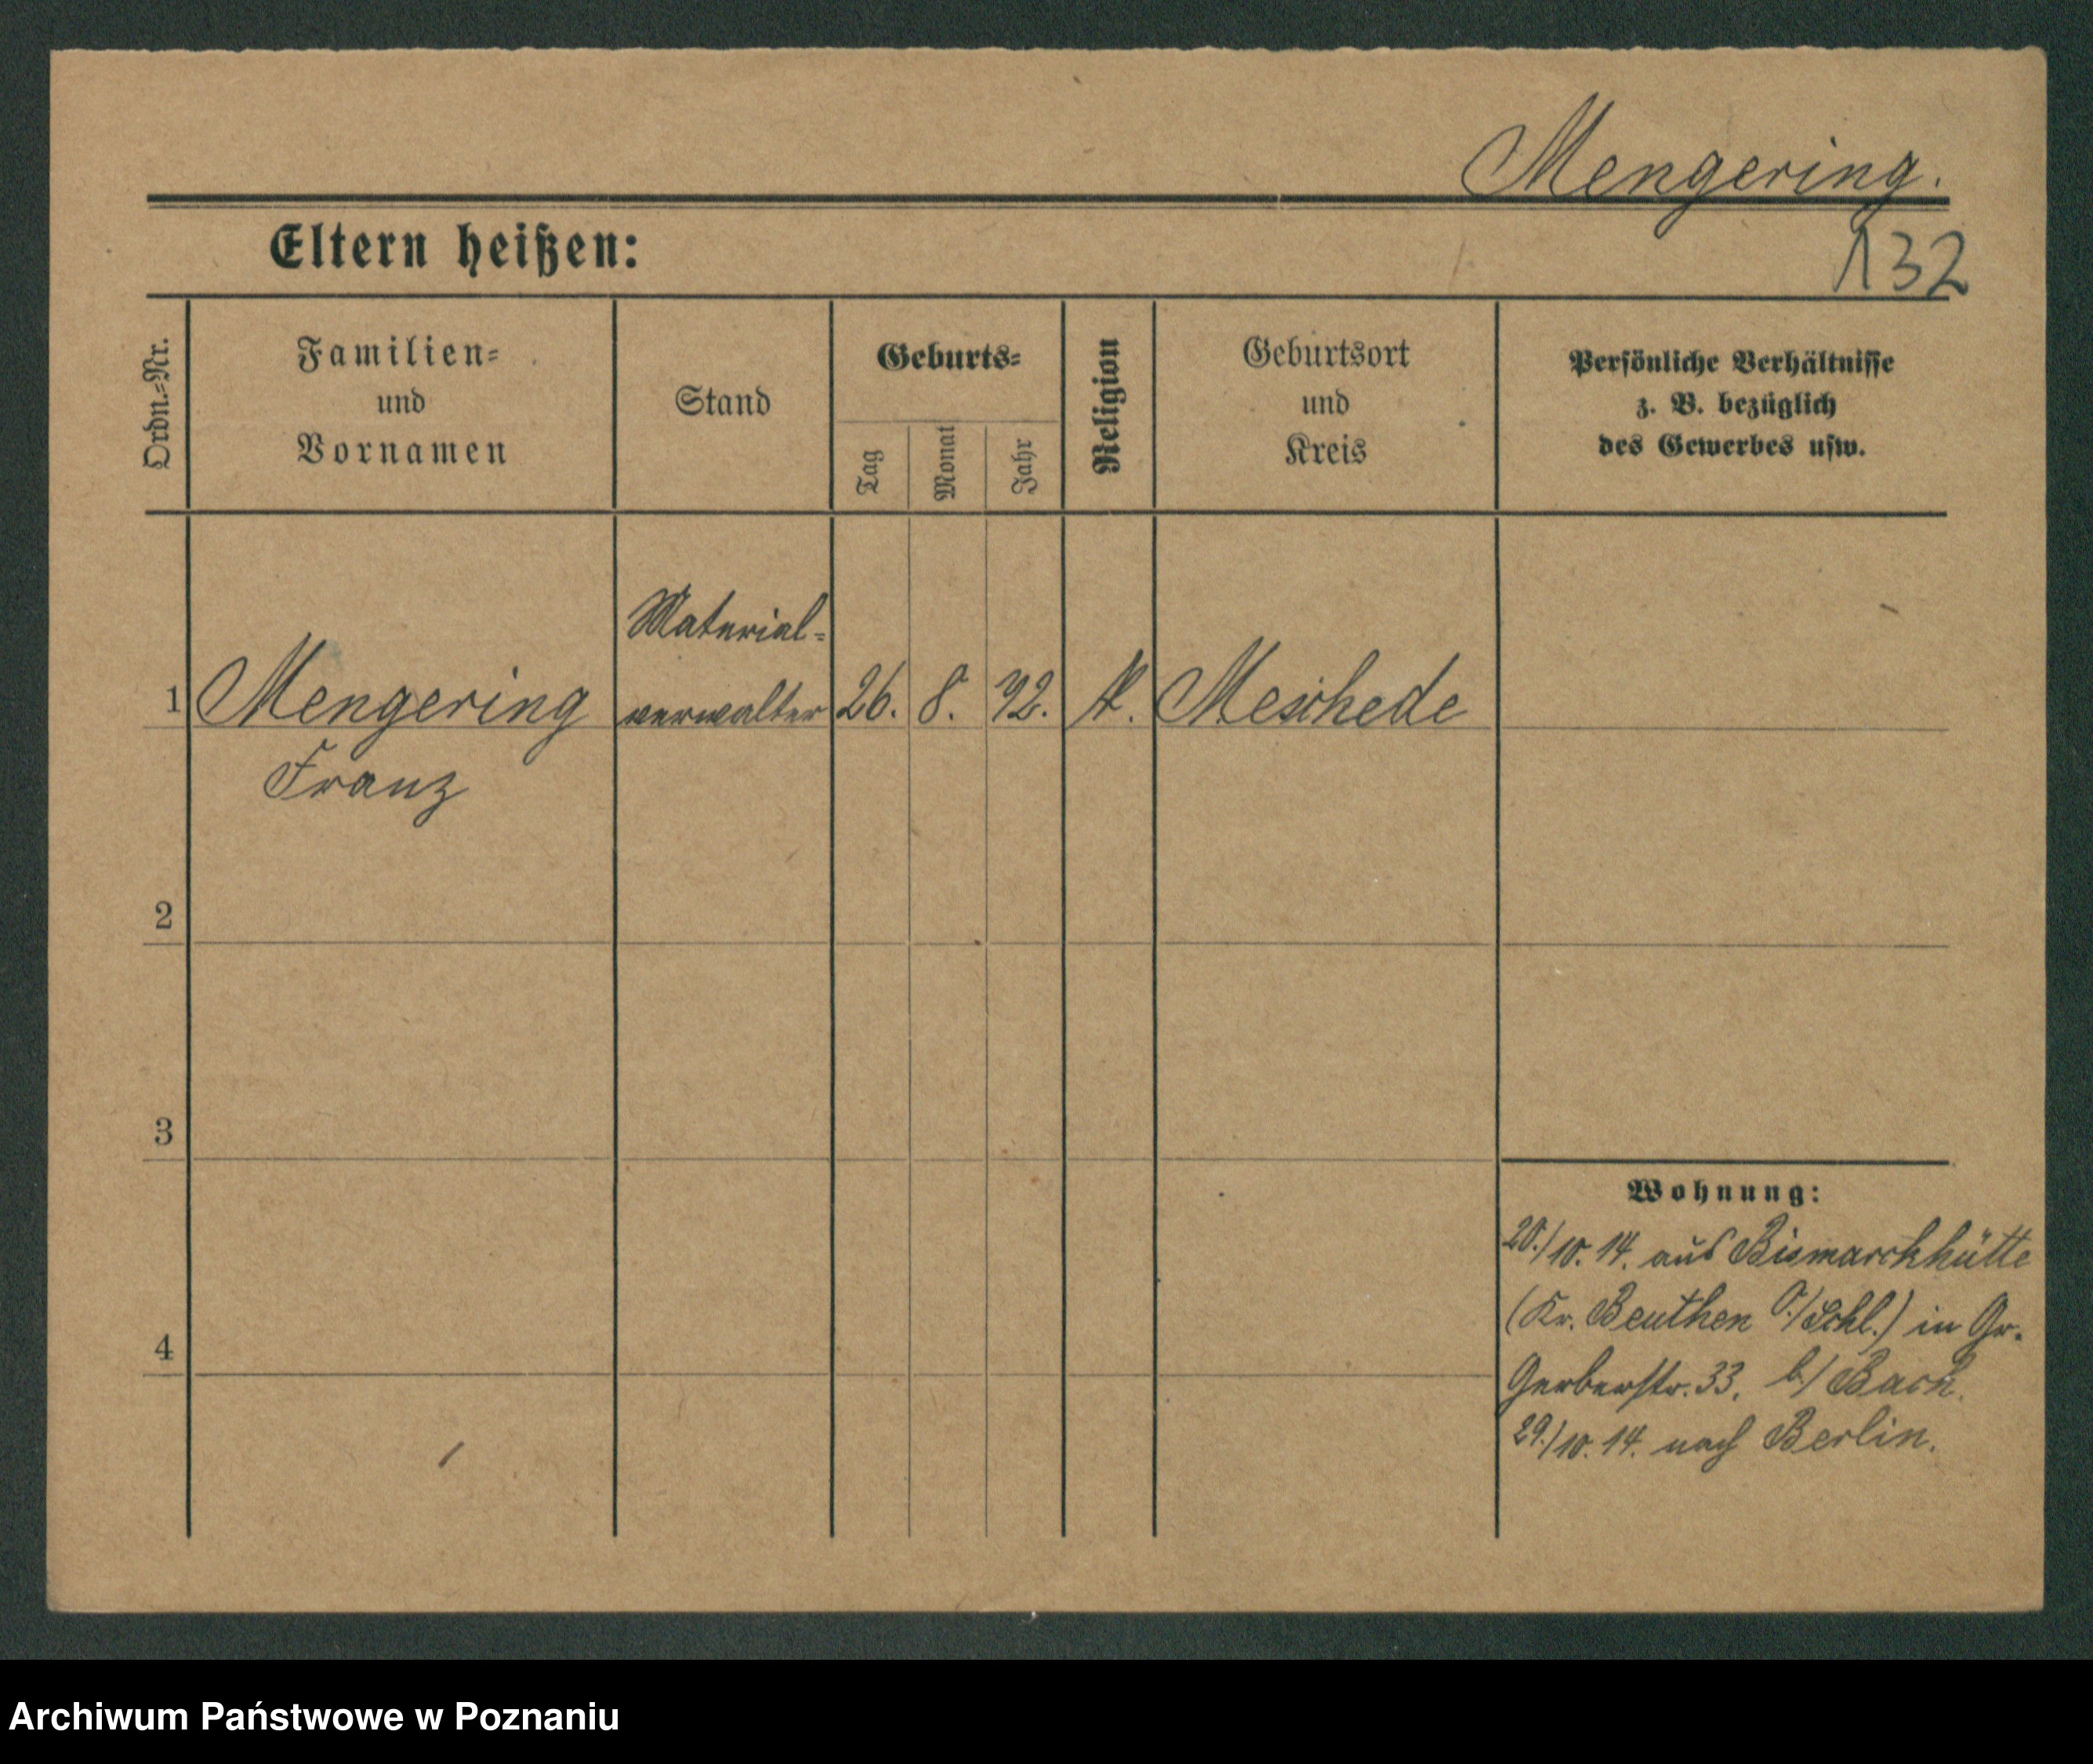 Mengering.
132
Eltern heißen:
Ordn.-Nr.
Familien-
und
Vornamen
Stand
Geburts-
Tag
Monat
Jahr
Religion
Geburtsort
und
Kreis
Persönliche Verhältnisse
z. B. bezüglich
des Gewerbes usw.
Material-
1 Mengering verwalter 26. 8. 92. K. Meschede
Franz
2
3
4
Wohnung:
20./10. 14. aus Bismarckhütte
(Kr. Beuthen O./Schl.) in Gr.
Gerberstr. 33. b./ Bach.
29./10. 14. nach Berlin.
Archiwum Państwowe w Poznaniu